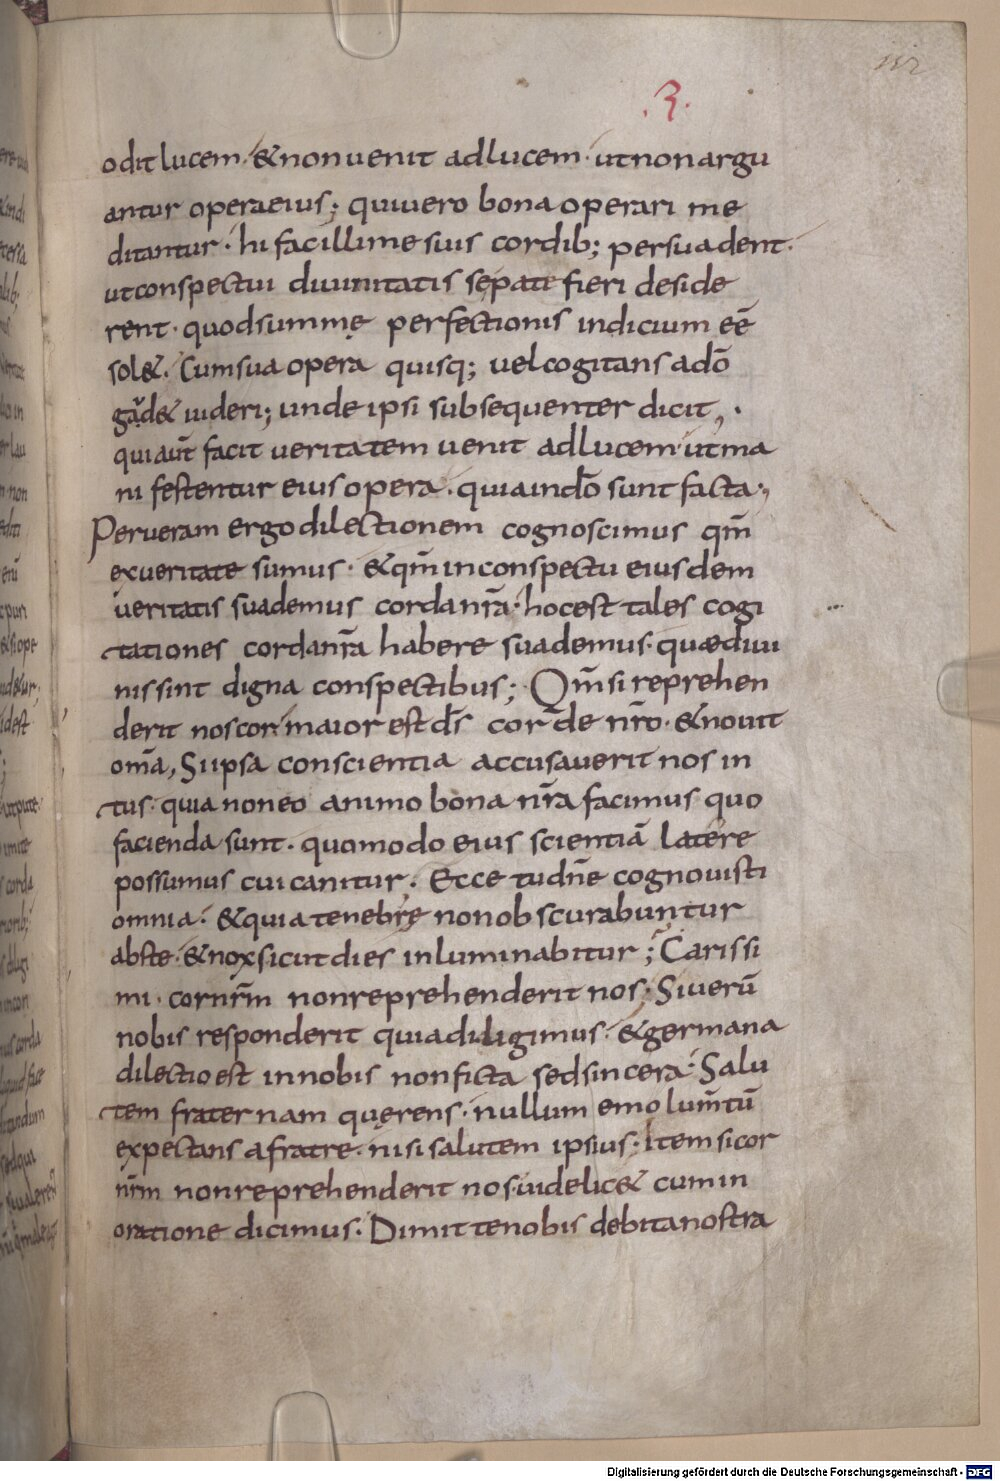 112
.3.
odit lucem. & non uenit ad lucem. ut non argu
antur opera eius; qui uero bona operari me
ditantur. hi facillime suis cordib; persuadent.
ut conspectui diuinitatis se pate fieri deside
rent. quod summę perfectionis indicium eē
sol&. Cum sua opera quisq; uel cogitans a dō
gaud& uideri; unde ipsi subsequenter dicit,.
qui aūt facit ueritatem uenit ad lucem ut ma
ni festentur eius opera. quia in dō sunt facta;
Per ueram ergo dilectionem cognoscimus qm̄
ex ueritate sumus. & qm̄ in conspectu eiusdem
ueritatis suademus corda nr̄a. hoc est tales cogi
tationes corda nr̄a habere suademus. quæ diui
nis sint digna conspectibus; Qm̄ si reprehen
derit nos cor. maior est ds̄ corde nr̄o. & nouit
om̄a, Si ipsa conscientia accusauerit nos in
tus. quia non eo animo bona nr̄a facimus quo
facienda sunt. quomodo eius scientiā latere
possumus cui canitur. Ecce tu dn̄e cognouisti
omnia. & quia tenebrę non obscurabuntur
abs te. & nox sicut dies inluminabitur; Carissi
mi. cor nr̄m non reprehenderit nos. Si uerū
nobis responderit quia diligimus. & germana
dilectio est in nobis non ficta sed sincera. Salu
tem fraternam quęrens. nullum emolum̄tū
expectans a fratre. nisi salutem ipsius. Item si cor
nr̄m non reprehenderit nos. uidelic& cum in
oratione dicimus. Dimitte nobis debita nostra
Digitalisierung gefördert durch die Deutsche Forschungsgemeinschaft - DFG